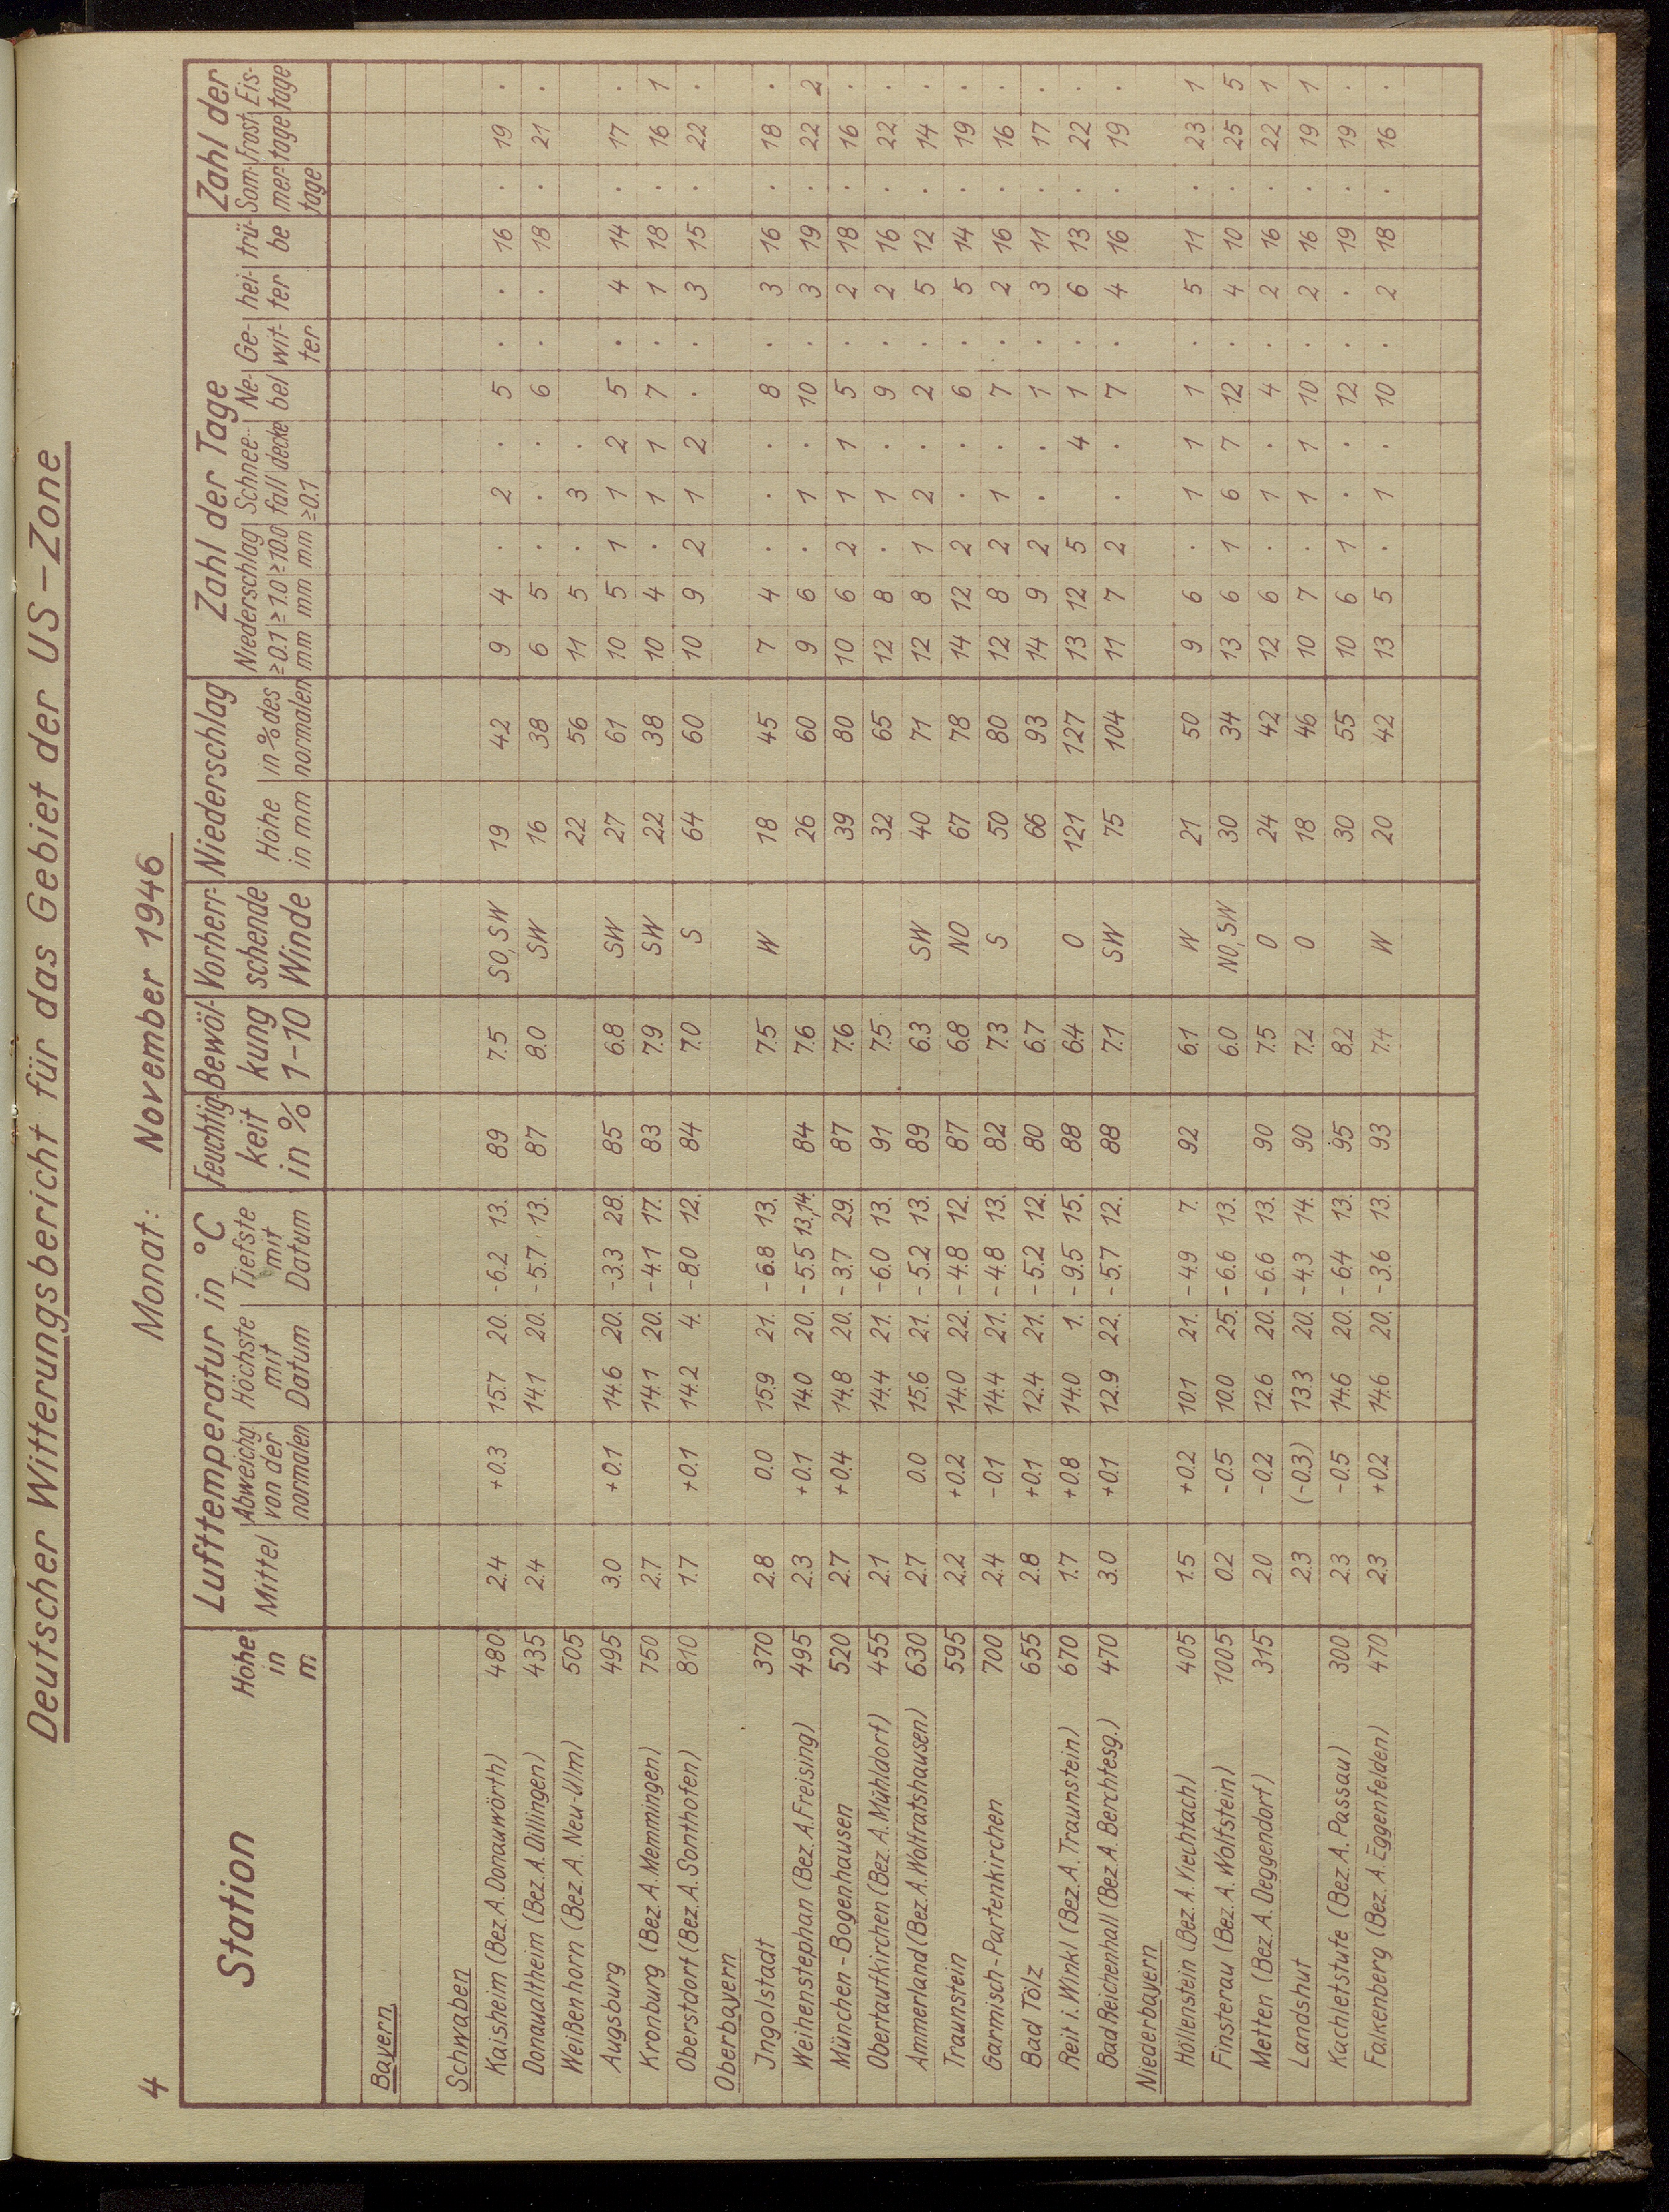 Deutscher Witterungsbericht für das Gebiet der US-Zone
4 Monat: November 1946
Station Höhe in m Lufttemperatur in °C Feuchtig- keit in % Bewöl- kung 1-10 Vorherr- schende Winde Niederschlag Zahl der Tage Zahl der
Mittel Abweichg. von der normalen Höchste mit Datum Tiefste mit Datum Höhe in mm in % des normalen Niederschlag ≥0.1 mm ≥1.0 mm ≥10.0 mm Schnee- fall ≥0.1 decke Ne- bel Ge- wit- ter hei- ter trü- be Som- mer- tage Frost- tage Eis- tage
Bayern
Schwaben
Kaisheim (Bez.A.Donauwörth) 480 2.4 +0.3 15.7 20. -6.2 13. 89 7.5 SO,SW 19 42 9 4 . 2 . 5 . . 16 . 19 .
Donaualtheim (Bez.A.Dillingen) 435 2.4 14.1 20. -5.7 13. 87 8.0 SW 16 38 6 5 . . . 6 . . 18 . 21 .
Weißenhorn (Bez.A. Neu-Ulm) 505 22 56 11 5 . 3 .
Augsburg 495 3.0 +0.1 14.6 20. -3.3 28. 85 6.8 SW 27 61 10 5 1 1 2 5 . 4 14 . 17 .
Kronburg (Bez.A.Memmingen) 750 2.7 14.1 20. -4.1 17. 83 7.9 SW 22 38 10 4 . 1 1 7 . 1 18 . 16 1
Oberstdorf (Bez.A.Sonthofen) 810 1.7 +0.1 14.2 4. -8.0 12. 84 7.0 S 64 60 10 9 2 1 2 . . 3 15 . 22 .
Oberbayern
Jngolstadt 370 2.8 0.0 15.9 21. -6.8 13. 7.5 W 18 45 7 4 . . . 8 . 3 16 . 18 .
Weihenstephan (Bez.A.Freising) 495 2.3 +0.1 14.0 20. -5.5 13,14. 84 7.6 26 60 9 6 . 1 . 10 . 3 19 . 22 2
München-Bogenhausen 520 2.7 +0.4 14.8 20. -3.7 29. 87 7.6 39 80 10 6 2 1 1 5 . 2 18 . 16 .
Obertaufkirchen (Bez.A.Mühldorf) 455 2.1 14.4 21. -6.0 13. 91 7.5 32 65 12 8 . 1 . 9 . 2 16 . 22 .
Ammerland (Bez.A.Wolfratshausen) 630 2.7 0.0 15.6 21. -5.2 13. 89 6.3 SW 40 71 12 8 1 2 . 2 . 5 12 . 14 .
Traunstein 595 2.2 +0.2 14.0 22. -4.8 12. 87 6.8 NO 67 78 14 12 2 . . 6 . 5 14 . 19 .
Garmisch-Partenkirchen 700 2.4 -0.1 14.4 21. -4.8 13. 82 7.3 S 50 80 12 8 2 1 . 7 . 2 16 . 16 .
Bad Tölz 655 2.8 +0.1 12.4 21. -5.2 12. 80 6.7 66 93 14 9 2 . . 1 . 3 11 . 17 .
Reit i. Winkl (Bez.A.Traunstein) 670 1.7 +0.8 14.0 1. -9.5 15. 88 6.4 O 121 127 13 12 5 4 1 . 6 13 . 22 .
Bad Reichenhall (Bez.A.Berchtesg.) 470 3.0 +0.1 12.9 22. -5.7 12. 88 7.1 SW 75 104 11 7 2 . . 7 . 4 16 . 19 .
Niederbayern
Höllenstein (Bez.A.Viechtach) 405 1.5 +0.2 10.1 21. -4.9 7. 92 6.1 W 21 50 9 6 . 1 1 1 . 5 11 . 23 1
Finsterau (Bez.A.Wolfstein) 1005 0.2 -0.5 10.0 25. -6.6 13. 6.0 NO,SW 30 34 13 6 1 6 7 12 . 4 10 . 25 5
Metten (Bez.A.Deggendorf) 315 2.0 -0.2 12.6 20. -6.6 13. 90 7.5 O 24 42 12 6 . 1 . 4 . 2 16 . 22 1
Landshut 2.3 (-0.3) 13.3 20. -4.3 14. 90 7.2 O 18 46 10 7 . 1 1 10 . 2 16 . 19 1
Kachletstufe (Bez.A.Passau) 300 2.3 -0.5 14.6 20. -6.4 13. 95 8.2 30 55 10 6 1 . . 12 . . 19 . 19 .
Falkenberg (Bez.A.Eggenfelden) 470 2.3 +0.2 14.6 20. -3.6 13. 93 7.4 W 20 42 13 5 . 1 . 10 . 2 18 . 16 .